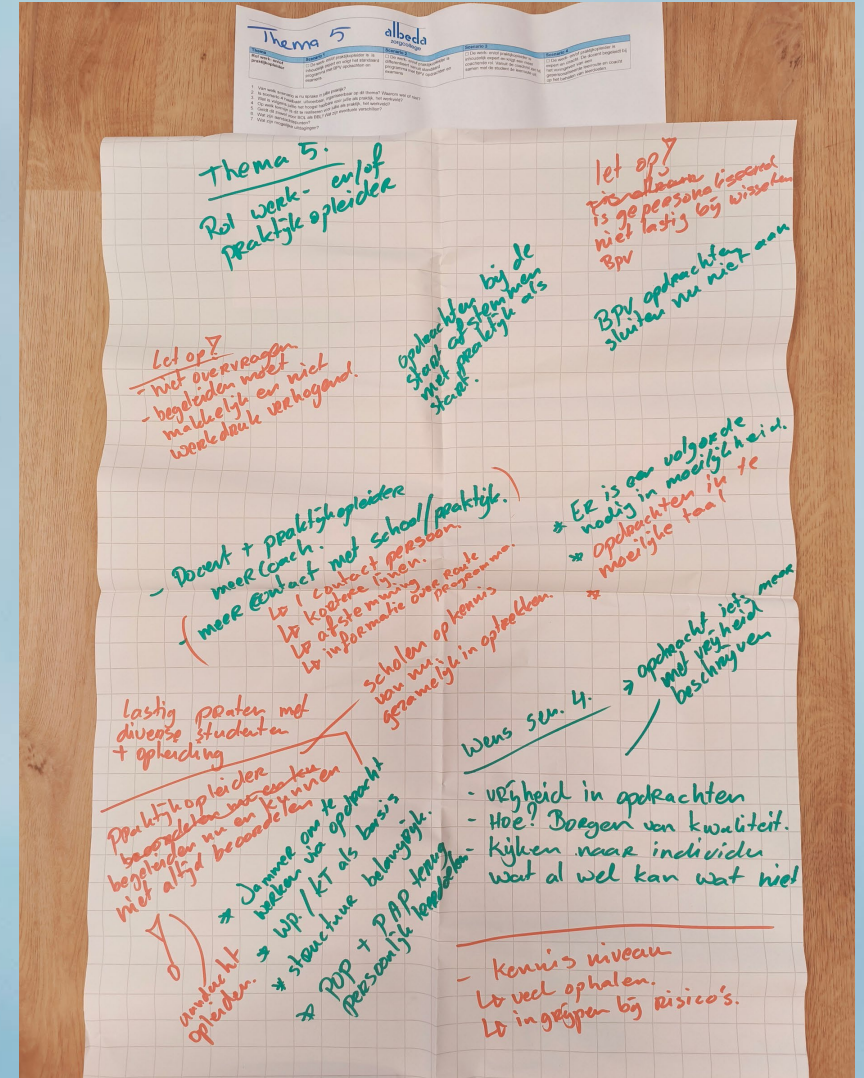 Thema 5
albeda
zorgcollege
Thema
Scenario 1
Scenario 2
Scenario 3
Scenario 4
Thema 5.
Rol werk- en/of
praktijkopleider
let op!
is gepersonaliseerd
niet lastig bij wisselen
Bpv
opdrachten bij de
start afstemmen
met praktijk als
start.
BPV opdrachten
sluiten nu niet aan
Let op!
- niet overvragen
- begeleiden moet
makkelijk en niet
werkdruk verhogend.
- Docent + praktijkopleider
meer coach.
- meer contact met school/praktijk.
↳ 1 contact persoon.
↳ kortere lijnen.
↳ afstemming
↳ informatie over route
programma.
* ER is een volgorde
nodig in moeilijkheid.
* opdrachten in te
moeilijke taal
*
scholen op kennis
van nu.
gezamelijk in optrekken.
→ opdracht iets meer
met vrijheid
beschrijven
lastig praten met
diverse studenten
+ opleiding
Praktijkopleider
begeleiden nu en kunnen
niet altijd beoordelen
aandacht
opleiden.
* Jammer om te
werken via opdracht
* WP./KT als basis
* structuur belangrijk.
* POP + PAP terug
persoonlijk leerdoelen
Wens sen. 4.
- vrijheid in opdrachten
- Hoe? Borgen van kwaliteit.
- Kijken naar individu
wat al wel kan wat niet
- kennis niveau
↳ veel ophalen.
↳ ingrijpen bij risico's.